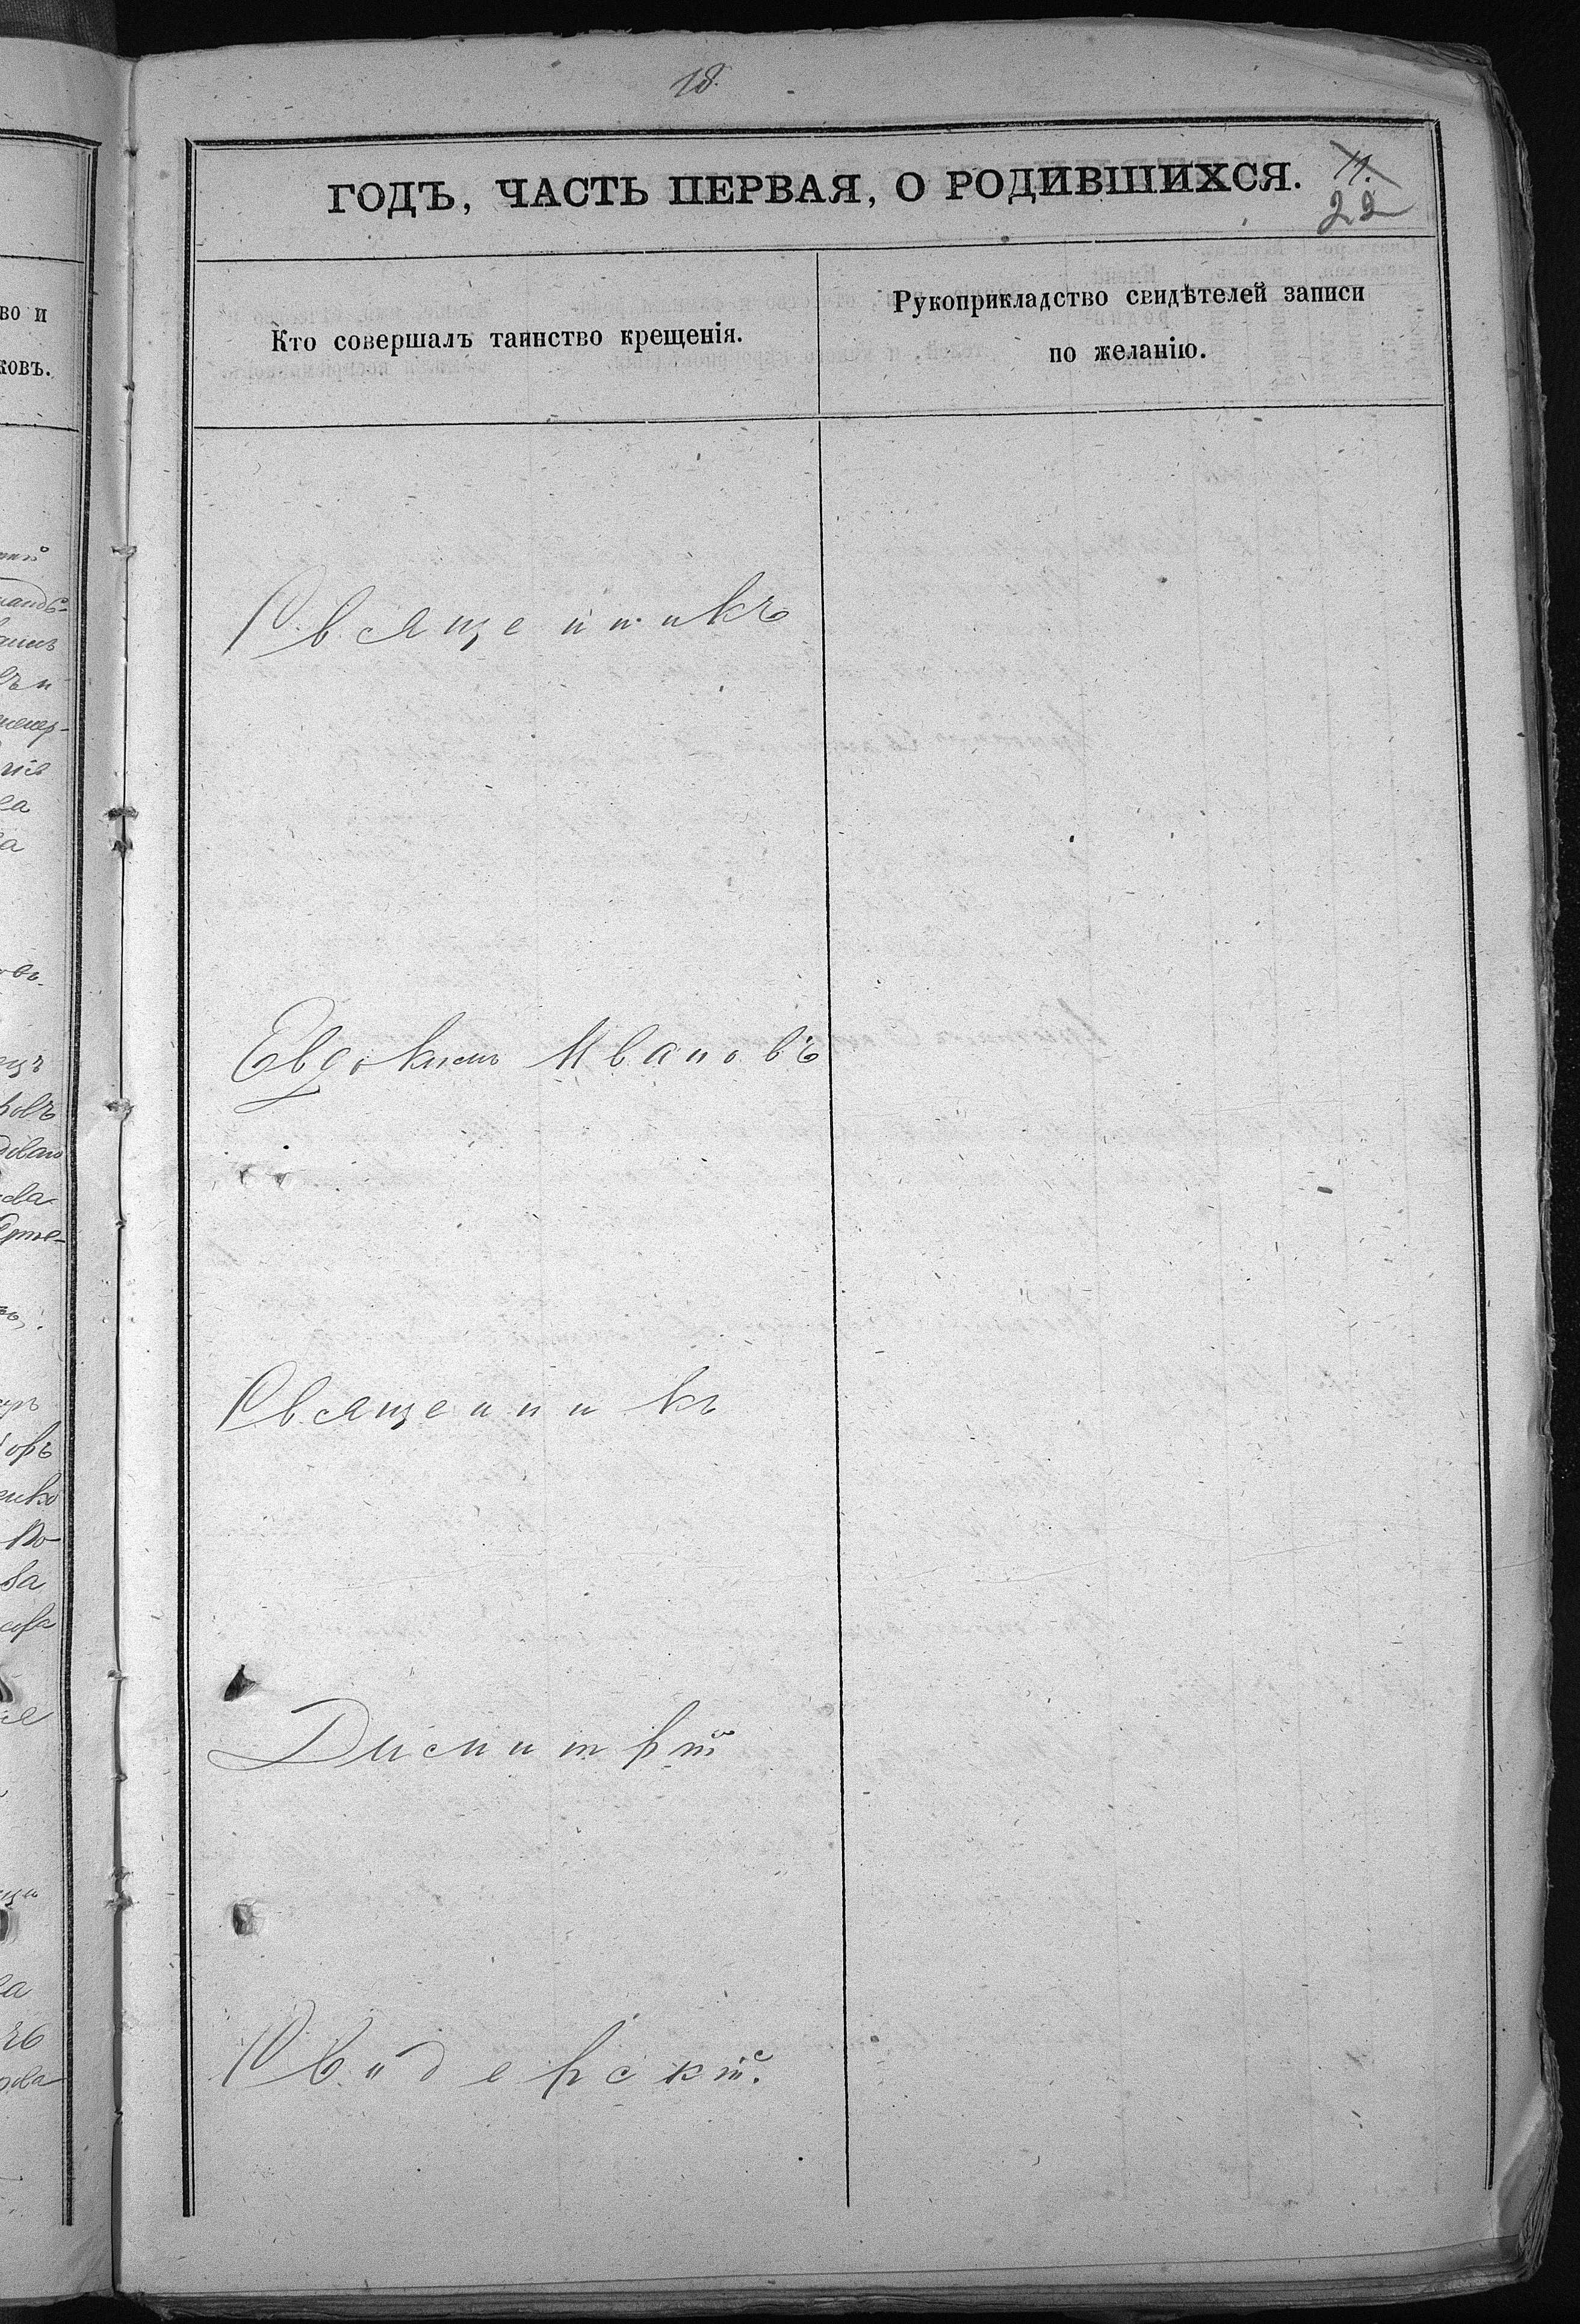 18.
ГОДЪ, ЧАСТЬ ПЕРВАЯ, О РОДИВШИХСЯ.
11.
22
во и
ковъ.
Кто совершалъ таинство крещенія.
Рукоприкладство свидѣтелей записи
по желанію.
Священникъ
Евдокимъ Ивановъ
Священникъ
Димитрій
Свидерскій.